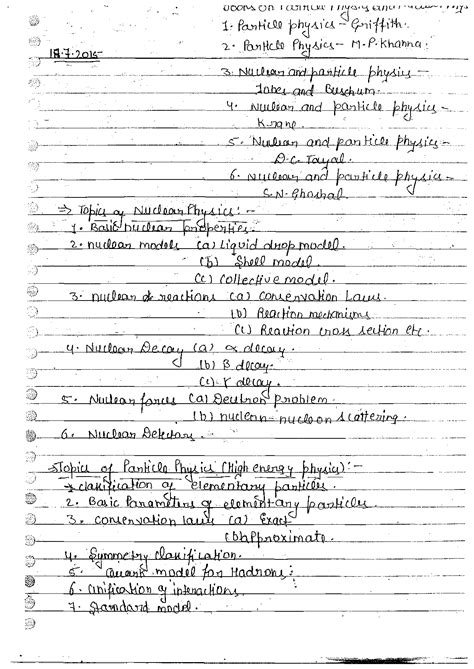 Books on Particle Physics and Nuclear Phy
1. Particle physics - Griffith.
2. Particle Physics - M.P. Khanna.
17.7.2015
3. Nuclear and particle physics -
and
4. Nuclear and particle physics -
Krane.
5. Nuclear and particle physics -
D.C. Tayal.
6. Nuclear and particle physics -
S.N. Ghoshal
⇒ Topics of Nuclear Physics: -
1. Basic nuclear properties.
2. nuclear models (a) Liquid drop model.
(b) Shell model.
(c) Collective model.
3. nuclear reactions (a) Conservation Laws.
(b) Reaction mechanisms
(c) Reaction cross section etc.
4. Nuclear Decay (a) α decay.
(b) β decay.
(c) γ decay.
5. Nuclear forces (a) Deutron problem.
(b) nucleon-nucleon scattering.
6. Nuclear Detectors. -
⇒ Topics of Particle Physics (High energy physics): -
1. Clasification of elementary particles.
2. Basic Parameters of elementary particles.
3. conservation laws (a) Exact
(b) Approximate.
4. Symmetry clasification.
5. Quark model for Hadrons:
6. Unification of interactions.
7. Standard model.